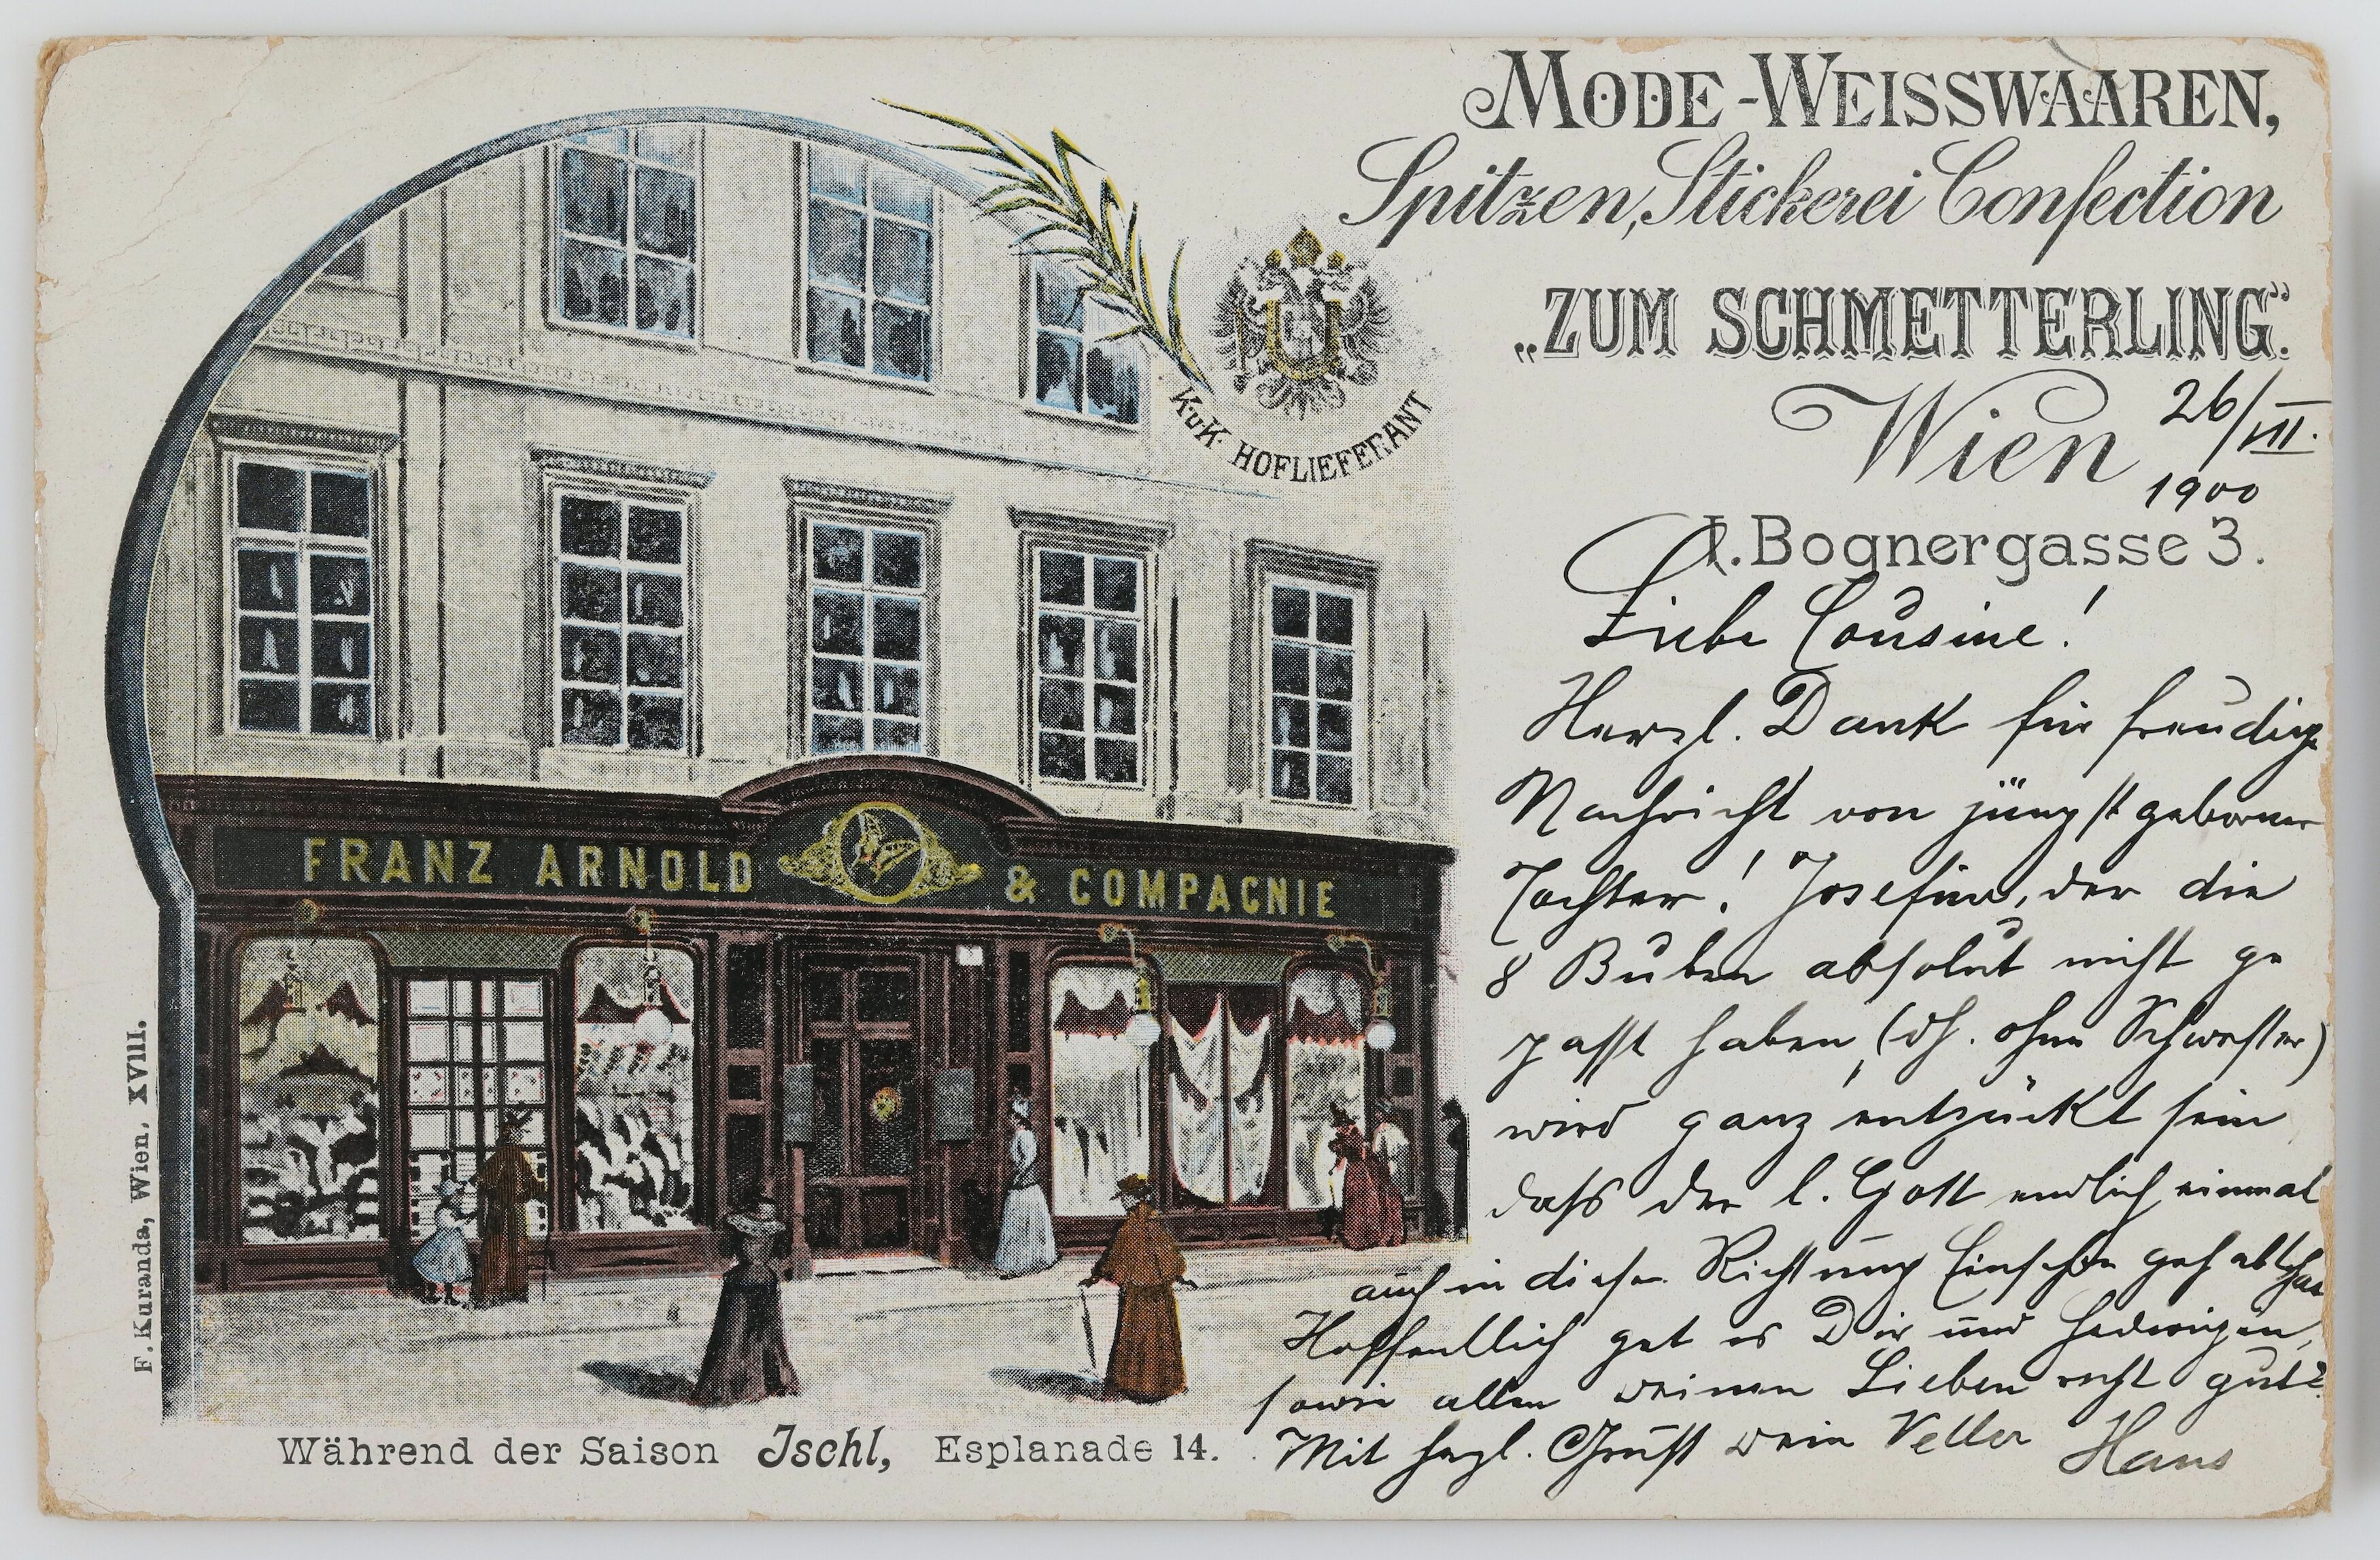 MODE-WEISSWAAREN,
Spitzen, Stickerei Confection
„ZUM SCHMETTERLING“.
Wien
26/VII.
1900
I. Bognergasse 3.
K.u.K. HOFLIEFERANT
FRANZ ARNOLD & COMPAGNIE
Liebe Cousine!
Herzl. Dank für freudige
Nachricht von jüngst geborener
Tochter! Josefine, der die
8 Buben absolut nicht ge
passt haben, (dh. ohne Schwester)
wird ganz entzückt sein
dass der l. Gott endlich einmal
auch in dieser Richtung Einsehen gehabt hat
Hoffentlich get es Dir und Hedwigen,
sowie allen deinen Lieben recht gut?
Mit hzgl. Gruss dein Vetter Hans
Während der Saison Ischl, Esplanade 14.
F. Kuranda, Wien, XVIII.